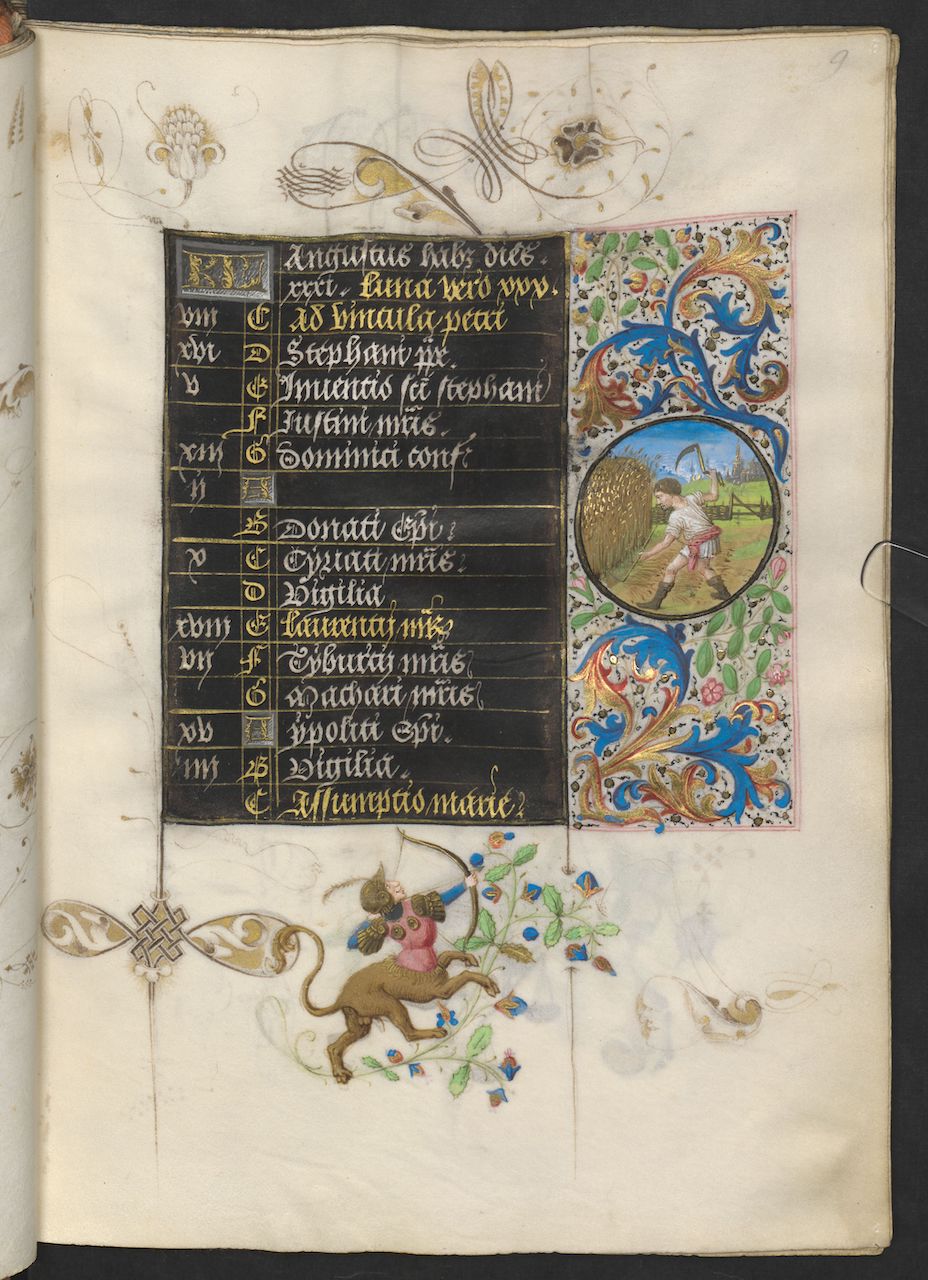 9
KL Augustus habꝫ dies .
xxxi . luna vero xxx .
viii C Ad vincula petri
xvi D Stephani pp̄e .
v E Inuentio sc̄i stephani
F Iustini mr̄is .
xiii G Dominici conf .
ij A
B Donati Ep̄i .
x C Cyriaci mr̄is .
D Vigilia
xviii E Laurencij mr̄is
vij F Tyburcij mr̄is
G Machari mr̄is
xv A ypoliti Ep̄i .
iiij B Vigilia .
C Assumptio marie